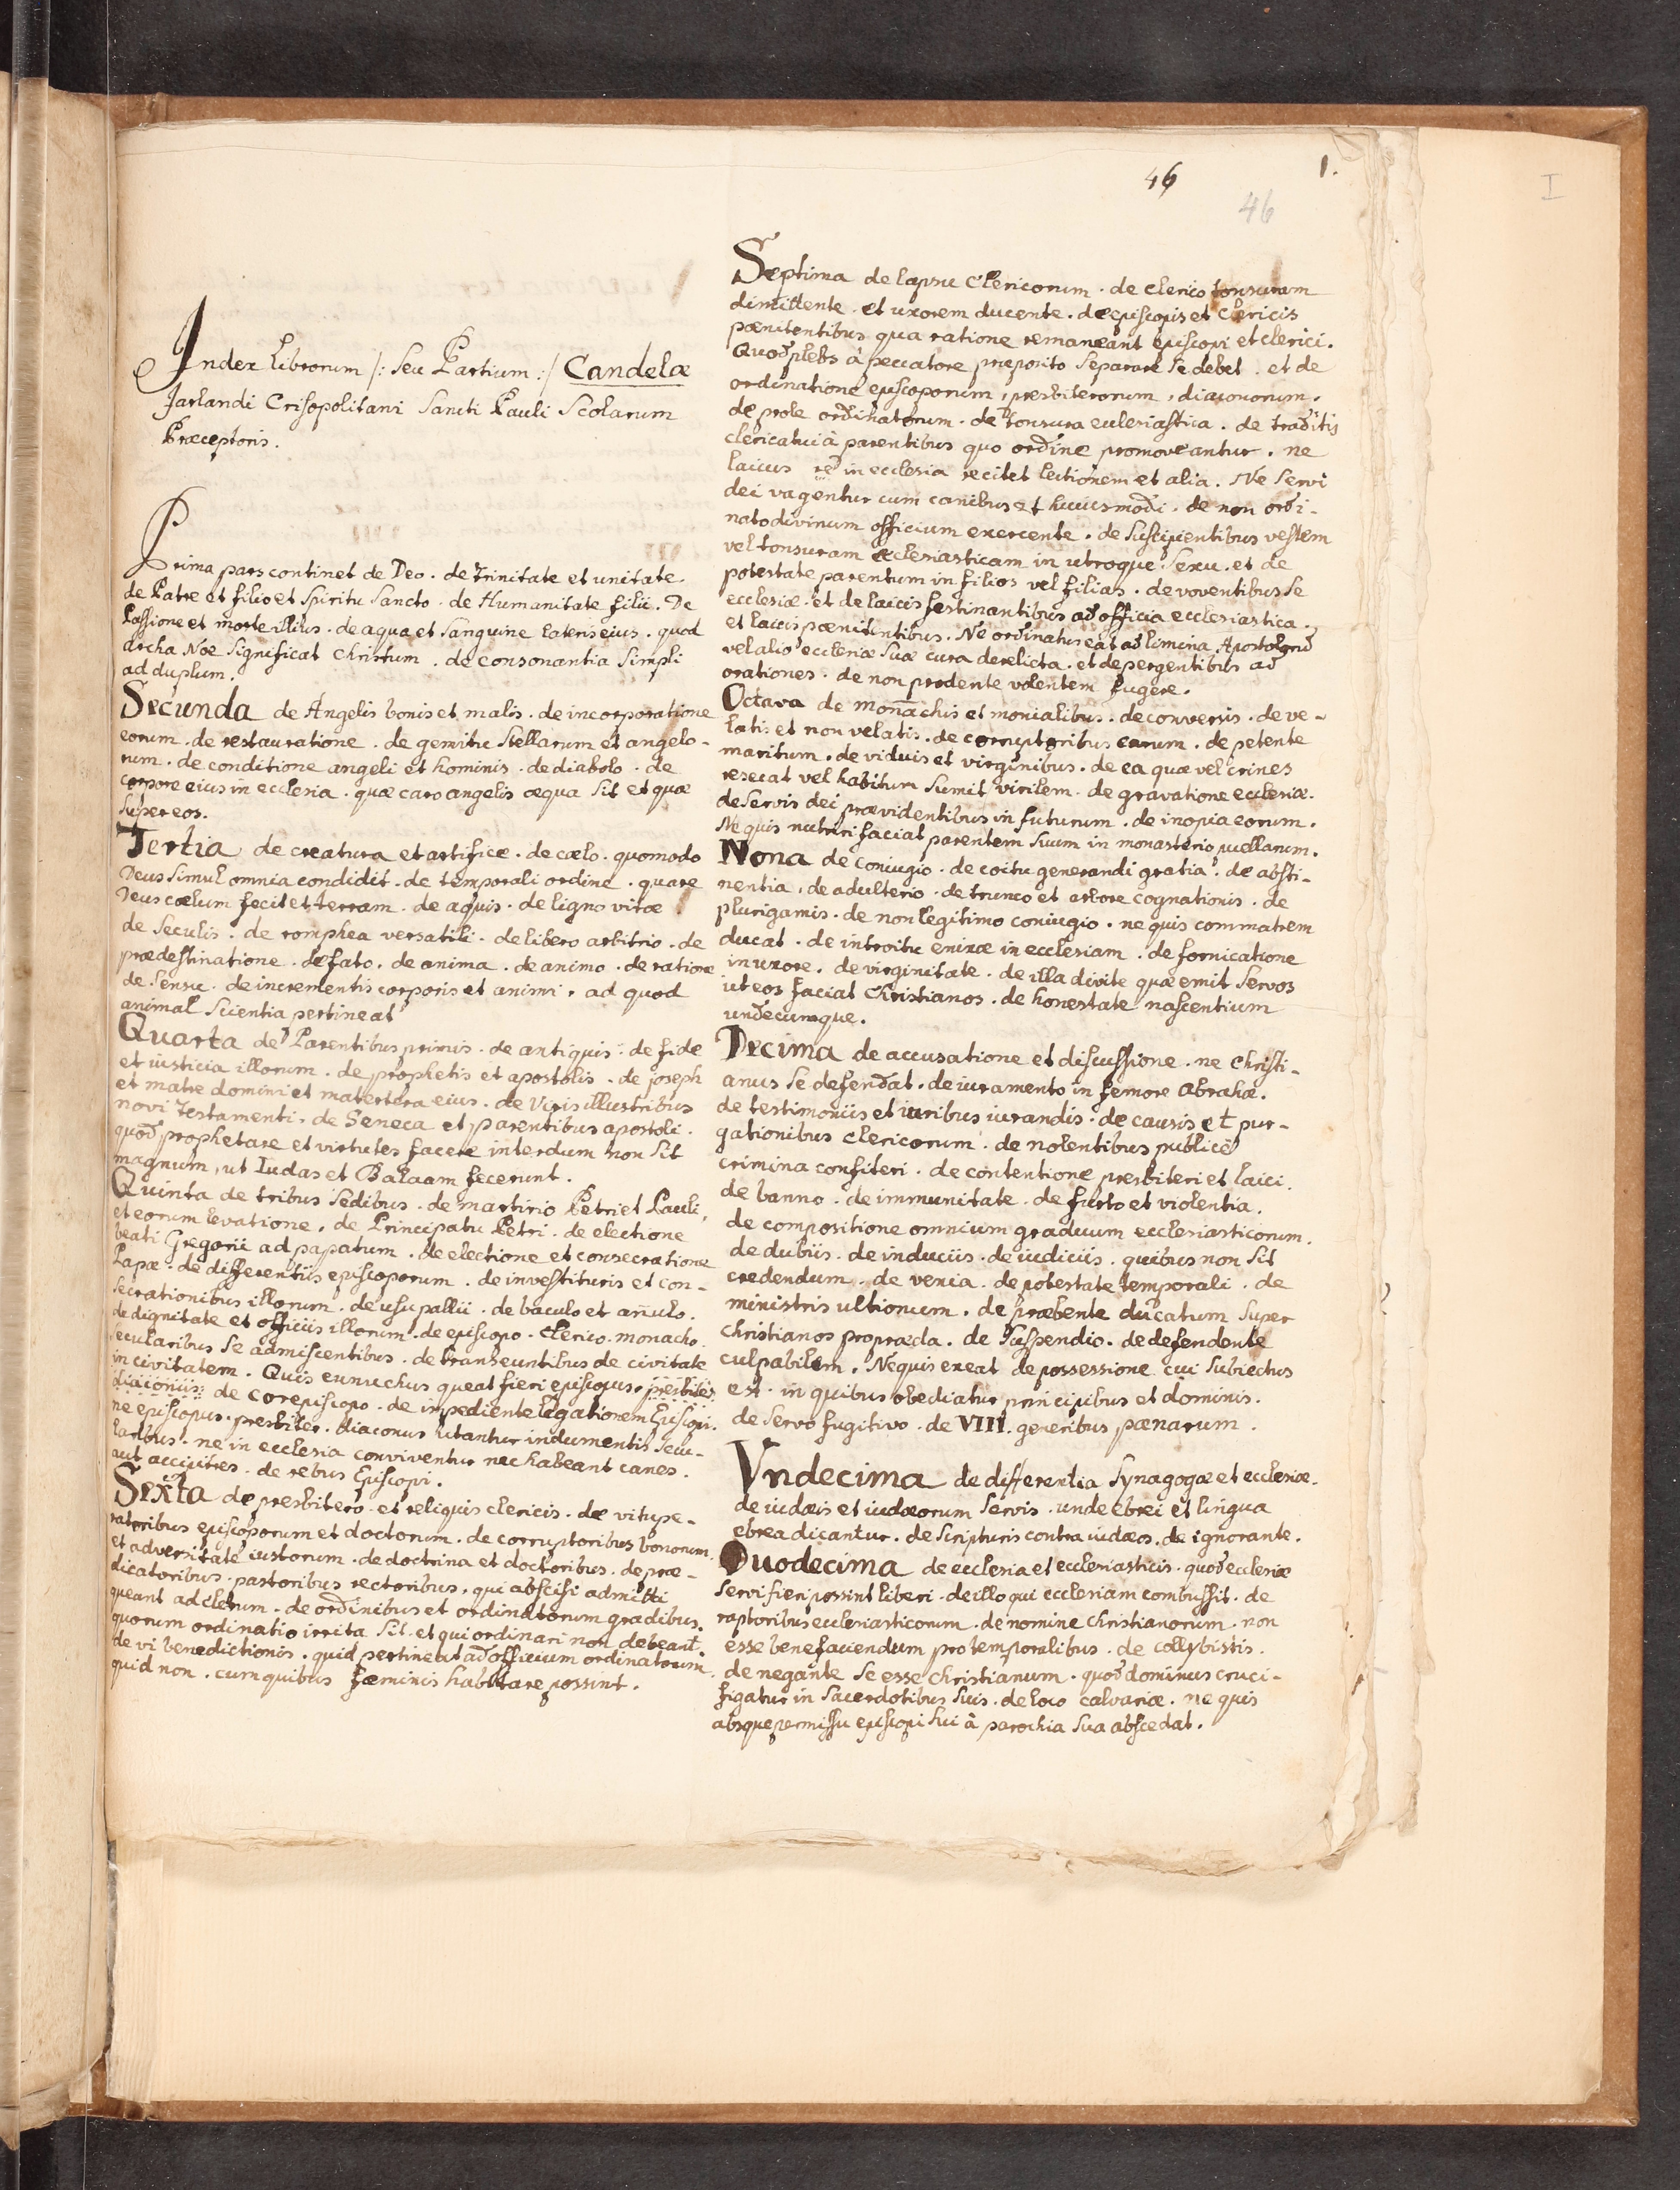 46
1.
46
I
Index librorum /: seu Partium :/ Candelæ
Jarlandi Crisopolitani Sancti Pauli Scolarum
Præceptoris.
Prima pars continet de Deo. de trinitate et unitate.
de Patre et filio et Spiritu Sancto. de Humanitate filii. De
Passione et morte illius. de aqua et sanguine lateris eius. quod
archa Nöe significat christum. de consonantia simpli
ad duplum.
Secunda de Angelis bonis et malis. de incorporatione
eorum. de restauratione. de gemitu stellarum et angelo-
rum. de conditione angeli et hominis. de diabolo. de
corpore eius in ecclesia. quæ caro angelis æqua sit et quæ
super eos.
Tertia de creatura et artifice. de cœlo. quomodo
Deus simul omnia condidit. de temporali ordine. quare
Deus cœlum fecit et terram. de aquis. de ligno vitæ
de seculis. de romphea versatili. de libero arbitrio. de
prædestinatione. de fato. de anima. de animo. de ratione
de sensu. de incrementis corporis et animi. ad quod
animal scientia pertineat
Quarta de Parentibus primis. de antiquis. de fide
et iusticia illorum. de prophetis et apostolis. de joseph
et matre domini et matertera eius. de Viris illustribus
novi testamenti. de Seneca et parentibus apostoli.
quod prophetare et virtutes facere interdum non sit
magnum, ut Iudas et Balaam fecerunt.
Quinta de tribus sedibus. de martirio Petri et Pauli,
et eorum levatione. de Principatu Petri. de electione
beati Gregorii ad papatum. de electione et consecratione
Papæ. de differentiis episcoporum. de investituris et con-
secrationibus illorum. de usu pallii. de baculo et anulo.
de dignitate et officiis illorum. de episcopo. clerico. monacho.
secularibus se admiscentibus. de transeuntibus de civitate
in civitatem. Quis eunuchus queat fieri episcopus. presbiter
diaconiis de corepiscopo. de impediente legationem Episcopi.
ne episcopus. presbiter. diaconus utantur indumentis secu-
laribus. ne in ecclesia conviventur nec habeant canes.
aut accipitres. de rebus Episcopi.
Sexta de presbitero et reliquis clericis. de vitupe-
ratoribus episcoporum et doctorum. de corruptoribus bonorum.
et adversitate iustorum. de doctrina et doctoribus. de præ-
dicatoribus. pastoribus rectoribus. qui abscisi admitti
queant ad clerum. de ordinibus et ordinatorum gradibus.
quorum ordinatio irrita sit. et qui ordinari non debeant.
de vi benedictionis. quid pertineat ad officium ordinatorum
quid non. cum quibus fæminis habitare possint.
Septima de lapsu Clericorum. de clerico tonsuram
dimittente. et uxorem ducente. de episcopis et clericis
pœnitentibus qua ratione remaneant episcopi et clerici.
Quod plebs à peccatore præposito separare se debet. et de
ordinatione episcoporum, presbiterorum, diaconorum.
de prole ordinatorum. de tonsura ecclesiastica. de traditis
clericatui à parentibus quo ordine promoveantur. ne
laicus re in ecclesia recitet lectionem et alia. Ne servi
dei vagentur cum canibus et huiusmodi. de non ordi-
nato divinum officium exercente. de suscipientibus vestem
vel tonsuram ecclesiasticam in utroque sexu. et de
potestate parentum in filios vel filias. de voventibus se
ecclesiæ. et de laicis festinantibus ad officia ecclesiastica.
et laicis pœnitentibus. Ne ordinatus eat ad limina Apostolorum
vel alio ecclesiæ suæ cura derelicta. et de pergentibus ad
orationes. de non prodente volentem fugere.
Octava de monachis et monialibus. de conversis. de ve-
latis et non velatis. de corruptoribus earum. de petente
maritum. de viduis et virginibus. de ea quæ vel crines
resecat vel habitum sumit virilem. de gravatione ecclesiæ.
de servis dei prævidentibus in futurum. de inopia eorum.
Ne quis nutriri faciat parentem suum in monasterio puellarum.
Nona de coniugio. de coitu generandi gratia. de absti-
nentia. de adulterio. de trunco et arbore cognationis. de
plurigamis. de non legitimo coniugio. ne quis commatrem
ducat. de introitu enixæ in ecclesiam. de fornicatione
in uxore. de virginitate. de illa divite quæ emit servos
ut eos faciat Christianos. de honestate nascentium
undecumque.
Decima de accusatione et discussione. ne christi-
anus se defendat. de iuramento in femore Abrahæ.
de testimoniis et iuribus iurandis. de causis et pur-
gationibus clericorum. de nolentibus publice
crimina confiteri. de contentione presbiteri et laici.
de banno. de immunitate. de furto et violentia.
de compositione omnium graduum ecclesiasticorum.
de dubiis. de induciis. de iudiciis. quibus non sit
credendum. de venia. de potestate temporali. de
ministris ultionum. de præbente ducatum super
christianos pro præda. de suspendio. de defendente
culpabilem. Ne quis exeat de possessione cui subiectus
est. in quibus obediatur principibus et dominis.
de servo fugitivo. de VIII. generibus pœnarum.
Vndecima de differentia synagogæ et ecclesiæ.
de iudæis et iudæorum servis. unde ebrei et lingua
ebrea dicantur. de scripturis contra iudæos. de ignorante.
Duodecima de ecclesia et ecclesiasticis. quod ecclesiæ
servi fieri possint liberi. de illo qui ecclesiam combussit. de
raptoribus ecclesiasticorum. de nomine christianorum. non
esse benefaciendum pro temporalibus. de collybistis.
de negante se esse christianum. quod dominus cruci-
figatur in sacerdotibus suis. de loco calvariæ. ne quis
absque permissu episcopi sui à parochia sua abscedat.